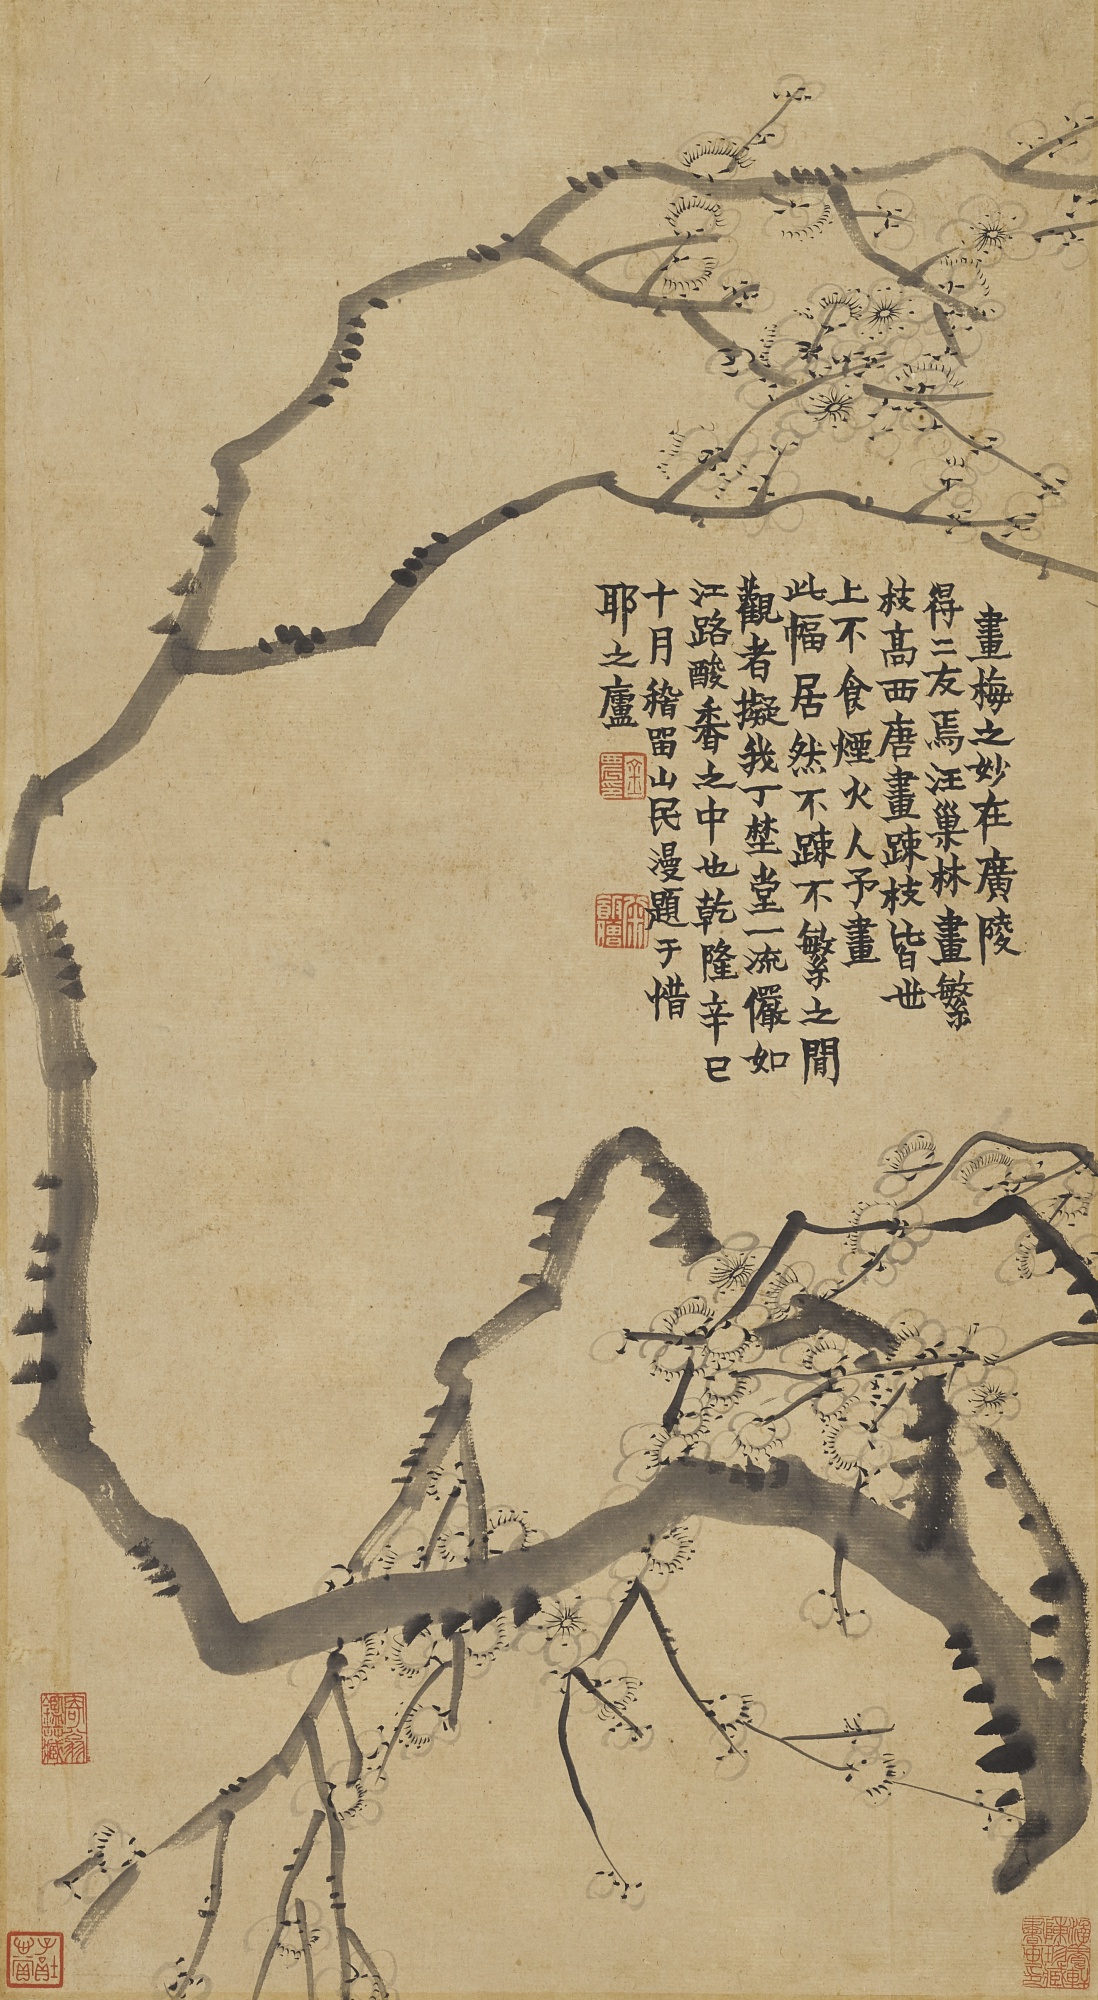 畫梅之妙在廣陵
得二友焉汪巢林畫繁
枝髙西唐畫踈枝皆世
上不食煙火人予畫
此幅居然不踈不繁之間
觀者擬我丁埜堂一流儼如
江路酸香之中也乾隆辛巳
十月稽畱山民漫題于惜
耶之廬
金農印